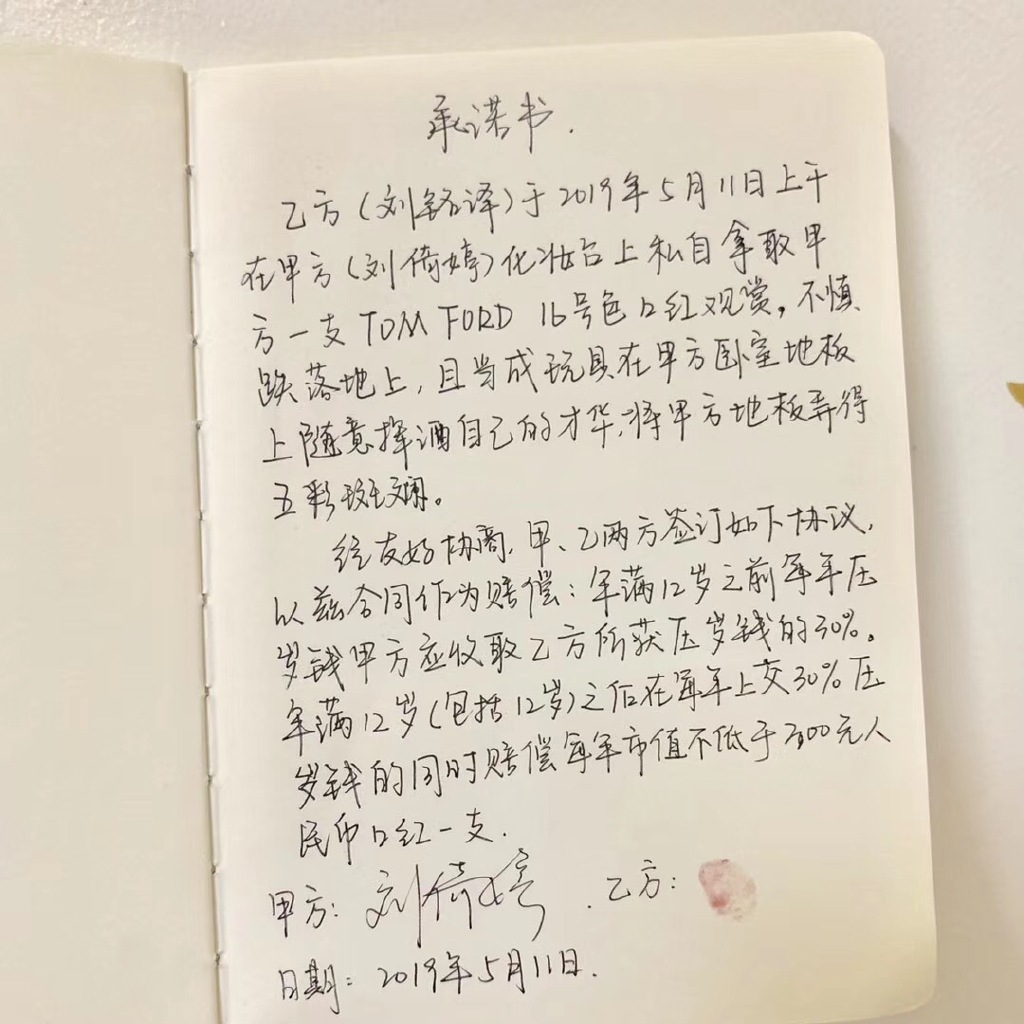 承诺书.
乙方(刘铭译)于2019年5月11日上午
在甲方(刘倚婷)化妆台上私自拿取甲
方一支TOM FORD 16号色口红观赏,不慎
跌落地上,且当成玩具在甲方卧室地板
上随意挥洒自己的才华,将甲方地板弄得
五彩斑斓。
经友好协商,甲、乙两方签订如下协议,
以兹合同作为赔偿:年满12岁之前每年压
岁钱甲方应收取乙方所获压岁钱的30%。
年满12岁(包括12岁)之后在每年上交30%压
岁钱的同时赔偿每年市值不低于300元人
民币口红一支.
甲方: 刘倚婷 . 乙方:
日期: 2019年5月11日.